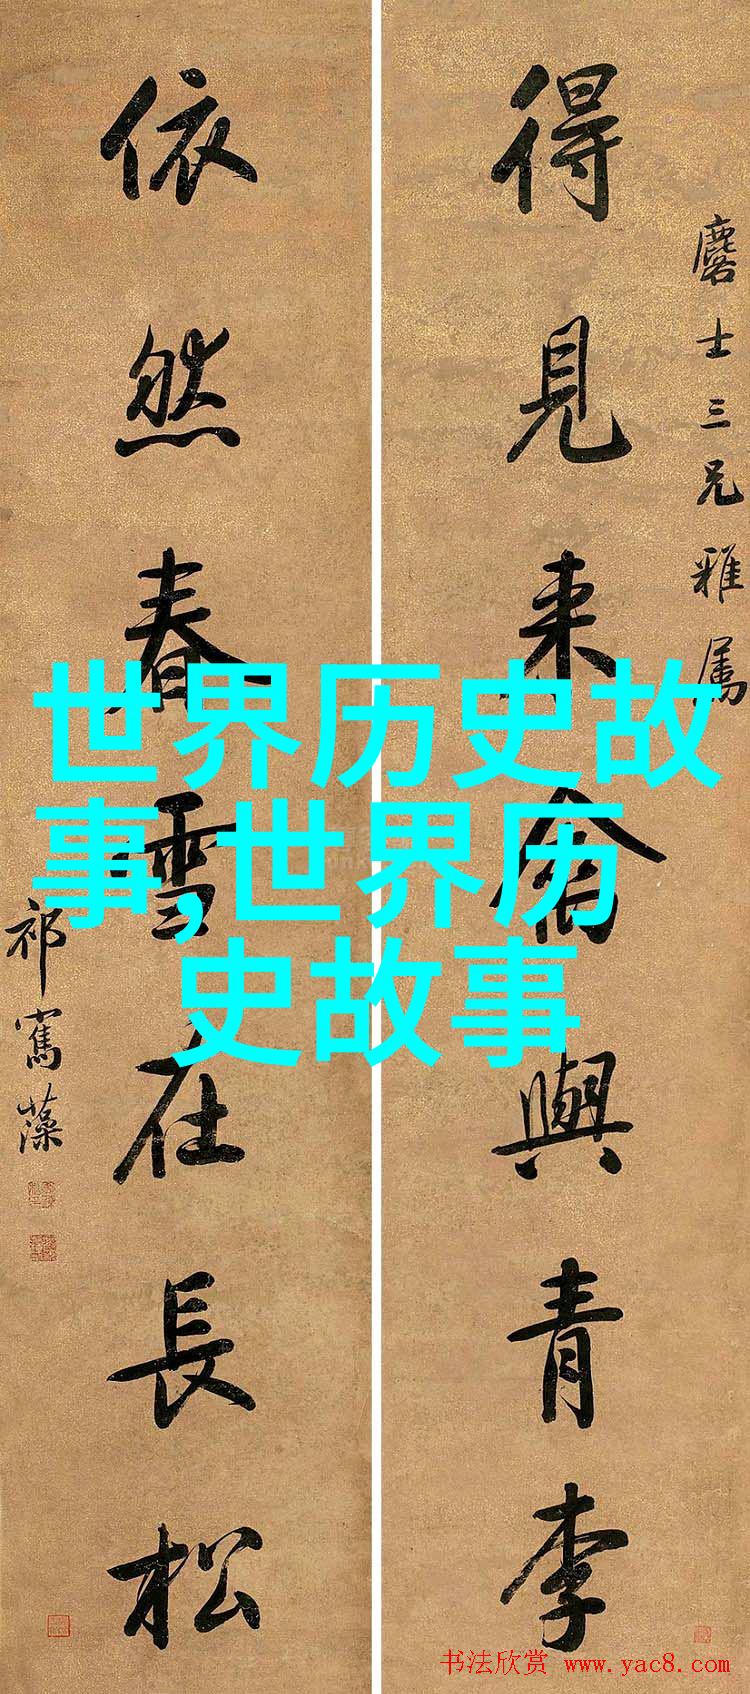 麐士三兄雅属
得見来禽與青李
依然春雪在長松
祁寯藻
世界历史故
事,世界历
史故事
书法欣赏 www.yac8.com